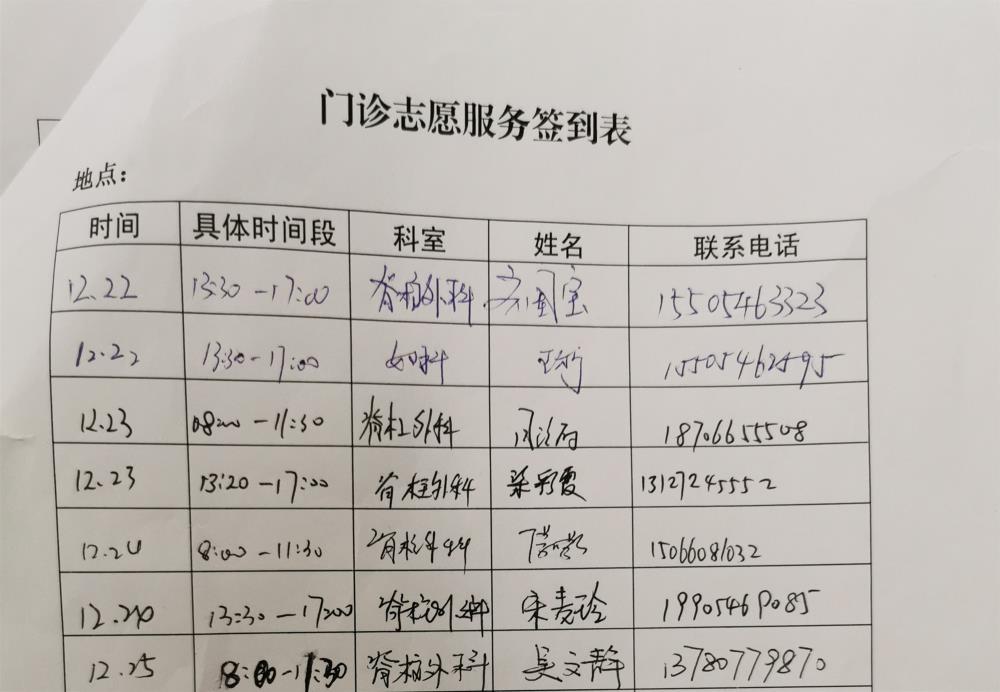 门诊志愿服务签到表
地点：
时间 具体时间段 科室 姓名 联系电话
12.22 13:30-17:00 脊柱外科 齐国宝 15505463323
12.22 13:30-17:00 妇科 15505462595
12.23 08:00-11:30 脊柱外科 18706655508
12.23 13:20-17:00 脊柱外科 梁彩霞 13127245552
12.24 8:00-11:30 脊柱外科 15066081032
12.24 13:30-17:00 脊柱外科 宋志玲 19905469085
12.25 8:00-11:30 脊柱外科 吴文静 13780779870